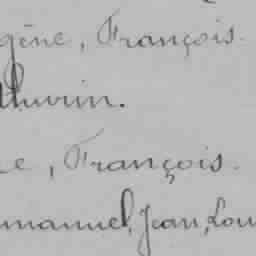 gène, François.
thurin.
e, François.
manuel, Jean, Lou